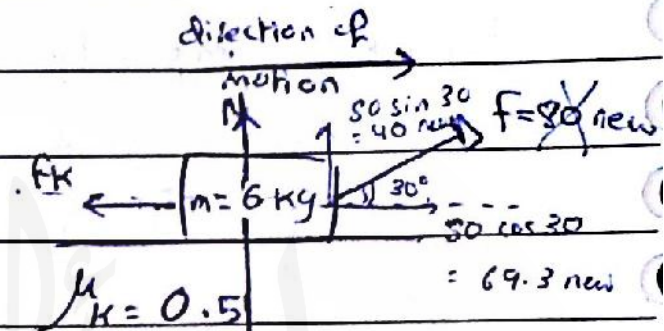 direction of
motion
N
80 sin 30
= 40 new
f=80 new
fK
m= 6 Kg
30°
80 cos 30
= 69.3 new
μK = 0.5